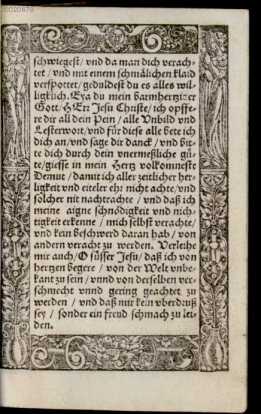 schwiegest / vnd da man dich verach-
tet / vnd mit einem schmälichen klaid
verspottet / geduldest du es alles wil-
ligklich. Eya du mein barmhertziger
Gott / HErr Jesu Christe / ich opffe-
re dir all dein Pein / alle Vnbild vnd
Lesterwort / vnd für diese alle bete ich
dich an / vnd sage dir danck / vnd bit-
te dich durch dein vnermeßliche gü-
te / giesse in mein Hertz volkomneste
Demut / damit ich aller zeitlicher her-
ligkeit vnd eiteler ehr nicht achte / vnd
solcher nit nachtrachte / vnd daß ich
meine aigne schnödigkeit vnd nich-
tigkeit erkenne / mich selbst verachte /
vnd kein beschwerd daran hab / von
andern veracht zu werden. Verleihe
mir auch / O süsser Jesu / daß ich von
hertzen begere / von der Welt vnbe-
kant zu sein / vnnd von derselben ver-
schmecht vnnd gering geachtet zu
werden / vnd daß mir kein vberdruß
sey / sonder ein freud schmach zu lei-
den.